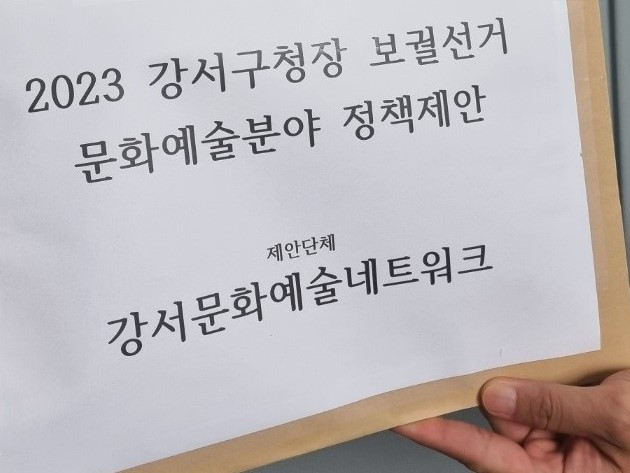 2023 강서구청장 보궐선거
문화예술분야 정책제안
제안단체
강서문화예술네트워크